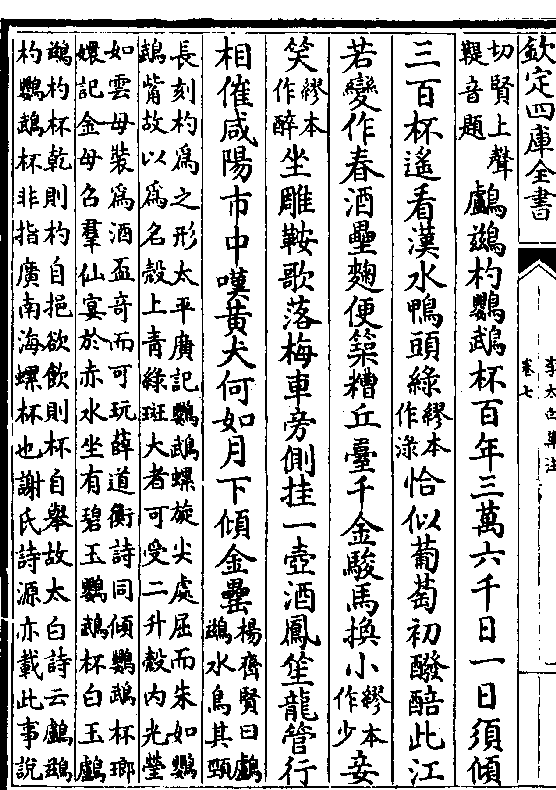 欽定四庫全書
李太白集注
卷七
切賢上聲
鞮音題
鸕鷀杓鸚鵡杯百年三萬六千日一日須傾
三百杯遙看漢水鴨頭綠繆本作淥恰似葡萄初醱醅此江
若變作春酒壘麴便築糟丘臺千金駿馬換小繆本作少妾
笑繆本作醉坐雕鞍歌落梅車旁側挂一壺酒鳳笙龍管行
相催咸陽市中嘆黃犬何如月下傾金罍
楊齊賢曰鸕
鷀水鳥其頸
長刻杓為之形太平廣記鸚鵡螺旋尖處屈而朱如鸚
鵡觜故以為名殼上青綠斑大者可受二升殼内光瑩
如雲母裝為酒盃奇而可玩薛道衡詩同傾鸚鵡杯瑯
嬛記金母召羣仙宴於赤水坐有碧玉鸚鵡杯白玉鸕
鷀杓杯乾則杓自挹欲飲則杯自舉故太白詩云鸕鷀
杓鸚鵡杯非指廣南海螺杯也謝氏詩源亦載此事說